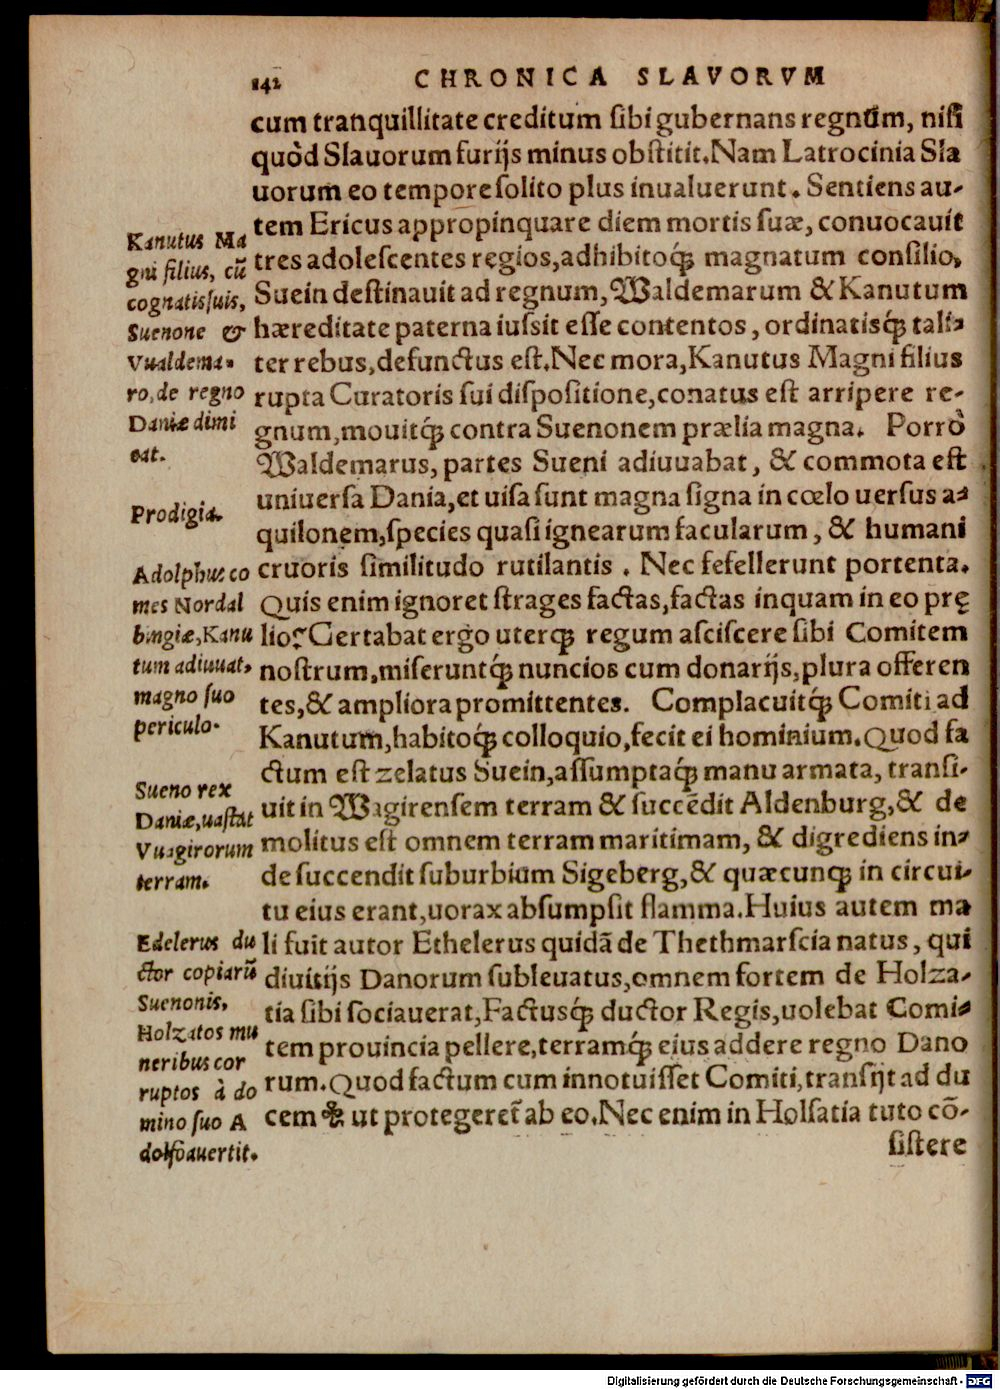 142 CHRONICA SLAVORVM
cum tranquillitate creditum sibi gubernans regnum, nisi
quòd Slauorum furijs minus obstitit. Nam Latrocinia Sla
uorum eo tempore solito plus inualuerunt. Sentiens au-
tem Ericus appropinquare diem mortis suæ, conuocauit
tres adolescentes regios, adhibitoq́; magnatum consilio,
Suein destinauit ad regnum, Waldemarum & Kanutum
hæreditate paterna iussit esse contentos, ordinatisq́; tali-
ter rebus, defunctus est. Nec mora, Kanutus Magni filius
rupta Curatoris sui dispositione, conatus est arripere re-
gnum, mouitq́; contra Suenonem prælia magna. Porrò
Waldemarus, partes Sueni adiuuabat, & commota est
uniuersa Dania, et uisa sunt magna signa in cœlo uersus a-
quilonem, species quasi ignearum facularum, & humani
cruoris similitudo rutilantis. Nec fefellerunt portenta.
Quis enim ignoret strages factas, factas inquam in eo prę
lio? Certabat ergo uterq; regum asciscere sibi Comitem
nostrum, miseruntq́; nuncios cum donarijs, plura offeren
tes, & ampliora promittentes. Complacuitq́; Comiti ad
Kanutum, habitoq́; colloquio, fecit ei hominium. Quod fa
ctum est zelatus Suein, assumptaq́; manu armata, transi-
uit in Wagirensem terram & succēdit Aldenburg, & de
molitus est omnem terram maritimam, & digrediens in-
de succendit suburbium Sigeberg, & quæcunq; in circui-
tu eius erant, uorax absumpsit flamma. Huius autem ma
li fuit autor Ethelerus quidā de Thethmarscia natus, qui
diuitijs Danorum subleuatus, omnem fortem de Holza-
tia sibi sociauerat, Factusq́; ductor Regis, uolebat Comi-
tem prouincia pellere, terramq́; eius addere regno Dano
rum. Quod factum cum innotuisset Comiti, transijt ad du
cem ut protegeret̃ ab eo. Nec enim in Holsatia tuto cō-
sistere
Kanutus Ma
gni filius, cū
cognatis suis,
Suenone &
Vualdema-
ro, de regno
Daniæ dimi
cat.
Prodigia.
Adolphus co
mes Nordal
bingiæ, Kanu
tum adiuuat,
magno suo
periculo.
Sueno rex
Daniæ, uastat
Vuagirorum
terram.
Edelerus du
ctor copiarū
Suenonis,
Holzatos mu
neribus cor
ruptos à do
mino suo A
dolfo auertit.
Digitalisierung gefördert durch die Deutsche Forschungsgemeinschaft - DFG